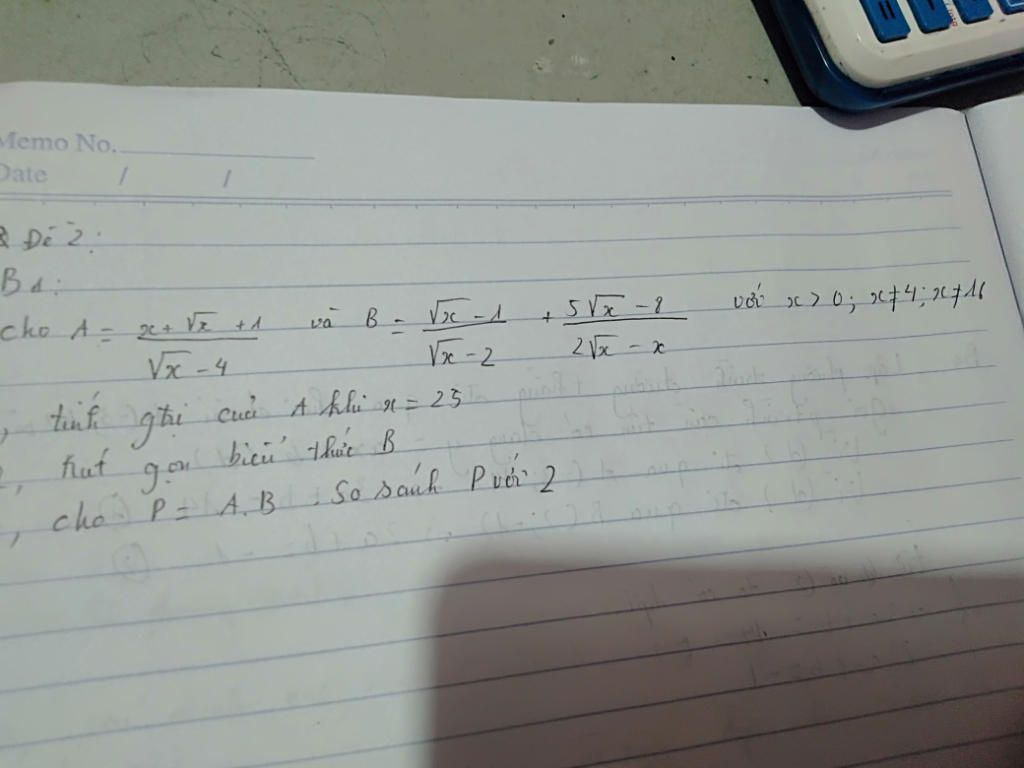 Memo No.
Date / /
Đề 2:
B1:
cho A = (x + √x + 1)/(√x - 4) và B = (√x - 1)/(√x - 2) + (5√x - 8)/(2√x - x) với x > 0; x ≠ 4; x ≠ 16
, tính gtri của A khi x = 25
2, rút gọn biểu thức B
, cho P = A.B. So sánh P với 2